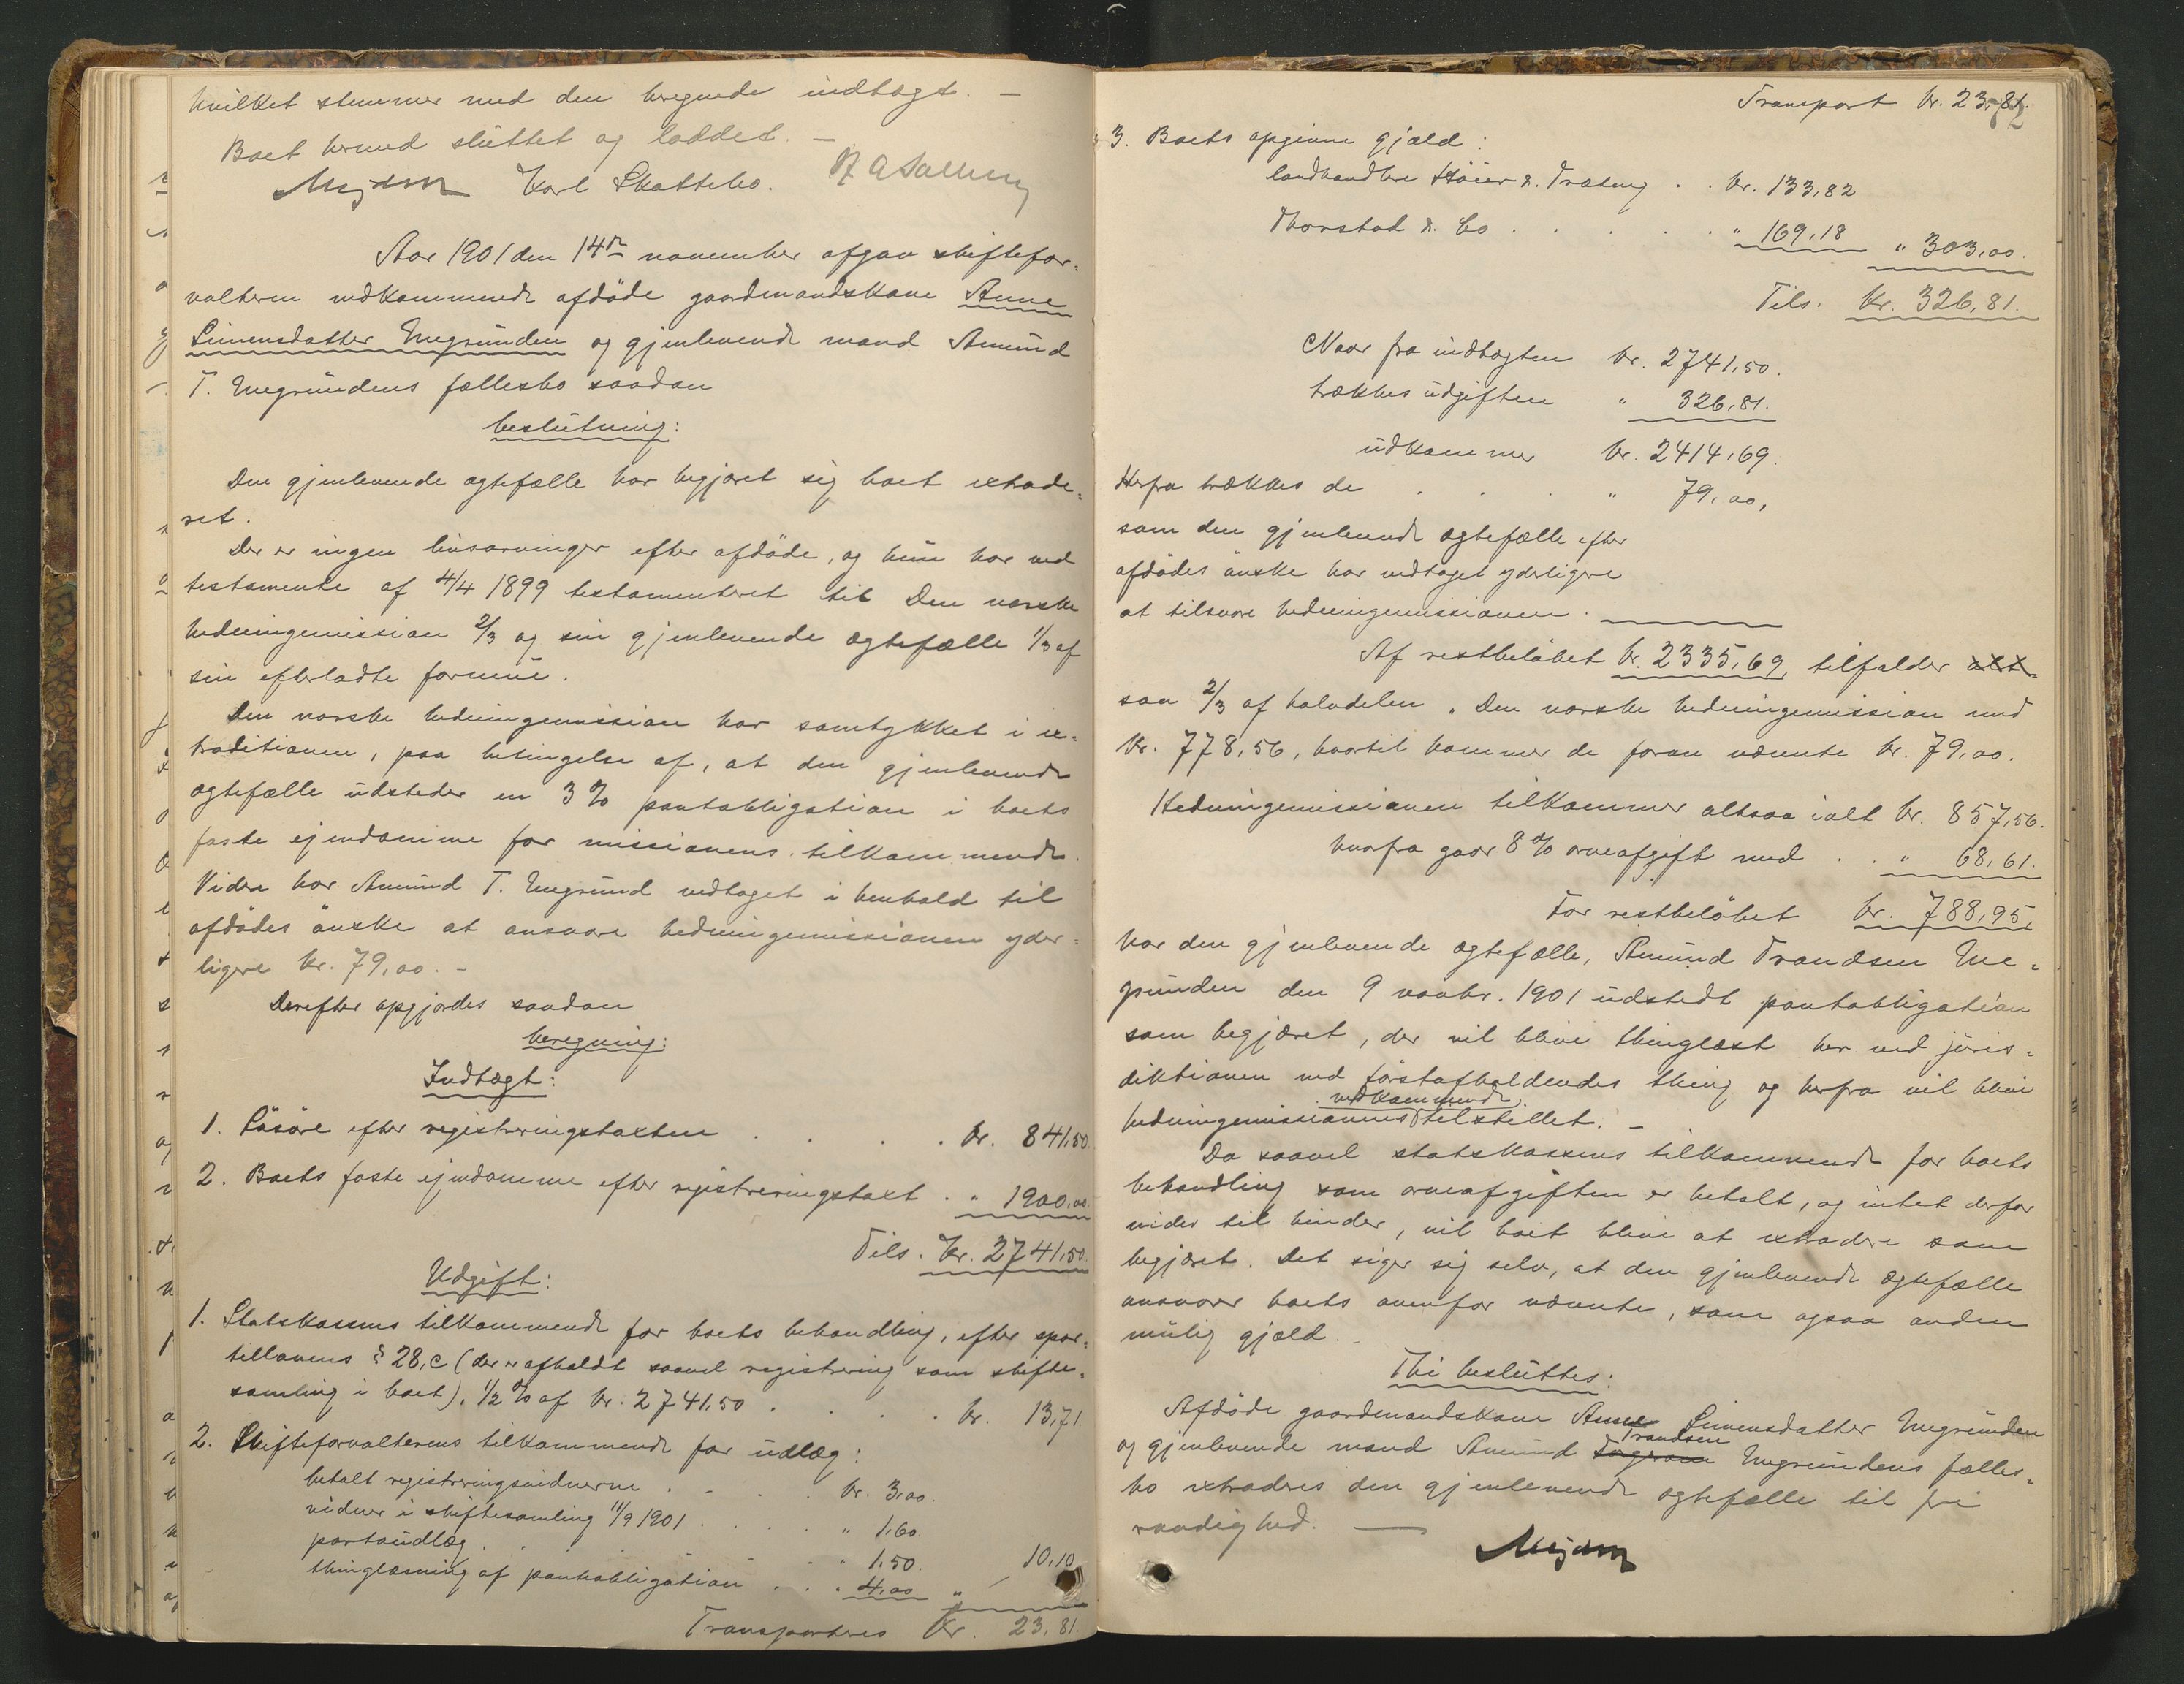 hvilket stemmer med den beregnede indtægt. —
Boet hermed sluttet og læddet. —
Karl Skattebo.
Aar 1901 den 14de november afgav skiftefor-
valteren vedkommende afdöde gaardmandskone Anne
Simensdatter Uvegrunden og gjenlevende mand Amund
T. Uvegrundens fællesbo saadan
beslutning:
Den gjenlevende ægtefælle har begjæret sig boet extrade-
ret.
Der er ingen livsarvinger efter afdöde, og hun har ved
testamente af 4/4 1899 testamenteret til Den norske
hedningemission 2/3 og sin gjenlevende ægtefælle 1/3 af
sin efterladte formue.
Den norske hedningemission har samtykket i ex-
traditionen, paa betingelse af, at den gjenlevende
ægtefælle udsteder en 3 % pantobligation i boets
faste ejendomme for missionens tilkommende.
Videre har Amund T. Uvegrund vedtaget i henhold til
afdödes önske at ansvare hedningemissionen yder-
ligere kr. 79,00. –
Derefter opgjordes saadan
beregning:
Indtægt:
1. Lösöre efter registreringstaxten . . . . kr. 841,50
2. Boets faste ejendomme efter registreringstaxt . „ 1900,00
Tils. Kr. 2741,50.
Udgift:
1. Statskassens tilkommende for boets behandling, efter spor-
tellovens § 28,c (der er afholdt saavel registrering som skifte-
samling i boet), 1/2 % af kr. 2741,50 . . . . kr. 13,71
2. Skifteforvalterens tilkommende for udlæg:
betalt registreringsvidnerne . . . kr. 3,00.
vidner i skiftesamling 11/9 1901 . . . „ 1,60.
portoudlæg . . . . „ 1,50.
thinglæsning af pantobligation . . . 4,00 „ 10,10
Transporteres Kr. 23,81.
Transport kr. 23,81.
3. Boets opgivne gjæld:
landhandlere Höier & Træteng . . kr. 133,82
Thorstad & Co . . . . . „ 169,18 „ 303,00.
Tils. Kr. 326,81.
Naar fra indtægten kr. 2741,50.
trækkes udgiften „ 326,81.
udkommer kr. 2414,69.
Herfra trækkes de . . . „ 79,00,
som den gjenlevende ægtefælle efter
afdödes önske har vedtaget yderligere
at tilsvare hedningemissionen.
Af restbelöbet kr. 2335,69, tilfalder alt-
saa 2/3 af halvdelen „ Den norske hedningemission med
kr. 778,56, hvortil kommer de foran nævnte kr. 79,00.
Hedningemissionen tilkommer altsaa ialt kr. 857,56.
hvorfra gaar 8 % arveafgift med . . „ 68,61.
For restbelöbet kr. 788,95,
har den gjenlevende ægtefælle, Amund Trondsen Uve-
grunden den 9 novbr. 1901 udstedt pantobligation
som begjæret, der vil blive thinglæst her ved juris-
diktionen ved förstafholdendes thing og herfra vil blive
vedkommende
hedningemissionens tilstillet. –
Da saavel statskassens tilkommende for boets
behandling som arveafgiften er betalt, og intet derfor
videre til hinder, vil boet blive at extradere som
begjæret. Det siger sig selv, at den gjenlevende ægtefælle
ansvarer boets ovenfor nævnte, som ogsaa anden
mulig gjæld. –
Thi besluttes:
Afdöde gaardmandskone Anne Simensdatter Uvegrunden
Trondsen
og gjenlevende mand Amund Uvegrundens fælles-
bo extraderes den gjenlevende ægtefælle til fri
raadighed. —